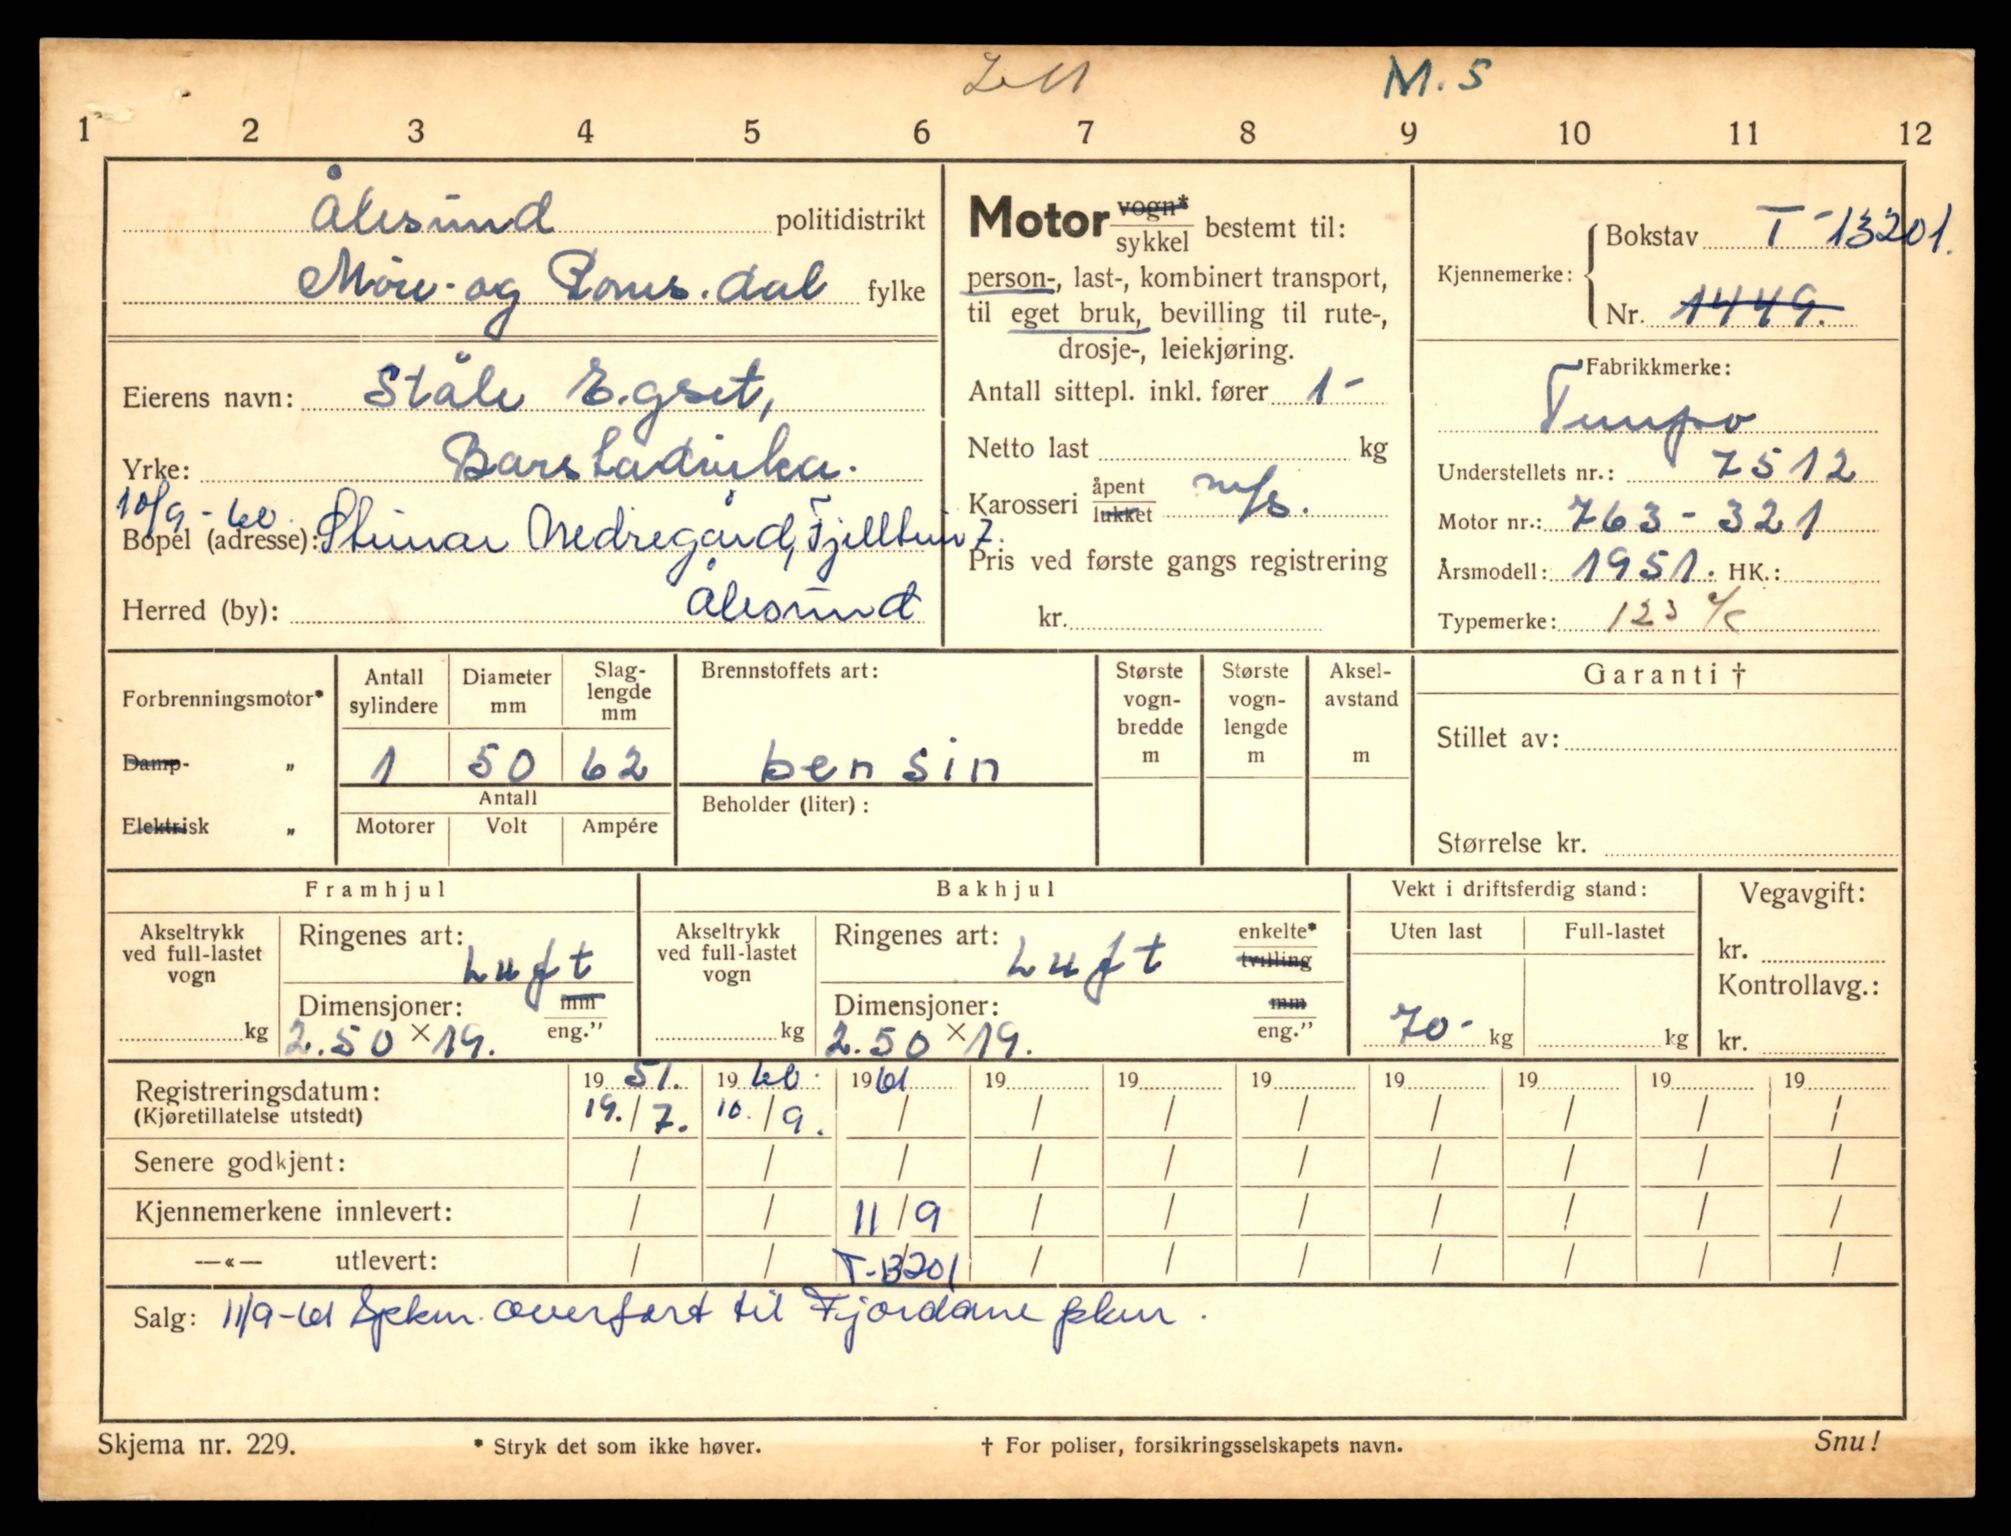 M.S
1 2 3 4 5 6 7 8 9 10 11 12
Ålesund politidistrikt
Møre- og Roms.dal fylke
Eierens navn: Ståle E.gset,
Yrke: Barstadvika.
10/9-60.
Bopel (adresse): Steinar Nedregård, Fjelltun 7.
Herred (by): Ålesund
Motor vogn* sykkel bestemt til:
person-, last-, kombinert transport,
til eget bruk, bevilling til rute-,
drosje-, leiekjøring.
Antall sittepl. inkl. fører 1-
Netto last kg
Karosseri åpent lukket m/s.
Pris ved første gangs registrering
kr.
Kjennemerke: Bokstav T-13201.
Nr. 1449.
Fabrikkmerke:
Tempo
Understellets nr.: 7512
Motor nr.: 763-321
Årsmodell: 1951. HK.:
Typemerke: 123
Forbrenningsmotor*
Damp- „
Elektrisk „
Antall sylindere
Diameter mm
Slag-lengde mm
1 50 62
Antall
Motorer Volt Ampére
Brennstoffets art:
bensin
Beholder (liter):
Største vogn-bredde m
Største vogn-lengde m
Aksel-avstand m
Garanti †
Stillet av:
Størrelse kr.
Framhjul
Akseltrykk ved full-lastet vogn
kg
Ringenes art: Luft
Dimensjoner: mm
2.50 × 19. eng.”
Bakhjul
Akseltrykk ved full-lastet vogn
kg
Ringenes art: Luft enkelte* tvilling
Dimensjoner: mm
2.50 × 19. eng.”
Vekt i driftsferdig stand:
Uten last Full-lastet
70- kg kg
Vegavgift:
kr.
Kontrollavg.:
kr.
Registreringsdatum: 1951. 1960. 1961 19 19 19 19 19 19 19
(Kjøretillatelse utstedt) 19./7. 10./9. / / / / / / / /
Senere godkjent: / / / / / / / / / /
Kjennemerkene innlevert: / / 11/9 / / / / / / /
—«— utlevert: / / T-13201 / / / / / / /
Salg: 11/9-61 overført til Fjordane
Skjema nr. 229.
* Stryk det som ikke høver.
† For poliser, forsikringsselskapets navn.
Snu!